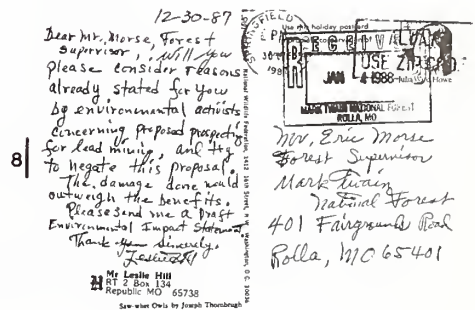 12-30-87
Dear Mr. Morse, Forest
Supervisor, will you
please consider reasons
already stated for you
by environmental activists
concerning proposed prospecting
for lead mining, and try
to negate this proposal.
The damage done would
outweigh the benefits.
Please send me a Draft
Environmental Impact Statement.
Thank you Sincerely,
Leslie Hill
Mr Leslie Hill
RT 2 Box 134
Republic MO 65738
Saw-whet Owls by Joseph Thornbrugh
8
National Wildlife Federation, 1412 16th Street, N.W., Washington, D.C. 20036
SPRINGFIELD
Use this holiday postcard
RECEIVED
USE ZIP CODE
JAN 4 1988
Julia Ward Howe
MARK TWAIN NATIONAL FOREST
ROLLA, MO
Mr. Eric Morse
Forest Supervisor
Mark Twain
National Forest
401 Fairgrounds Road
Rolla, MO 65401